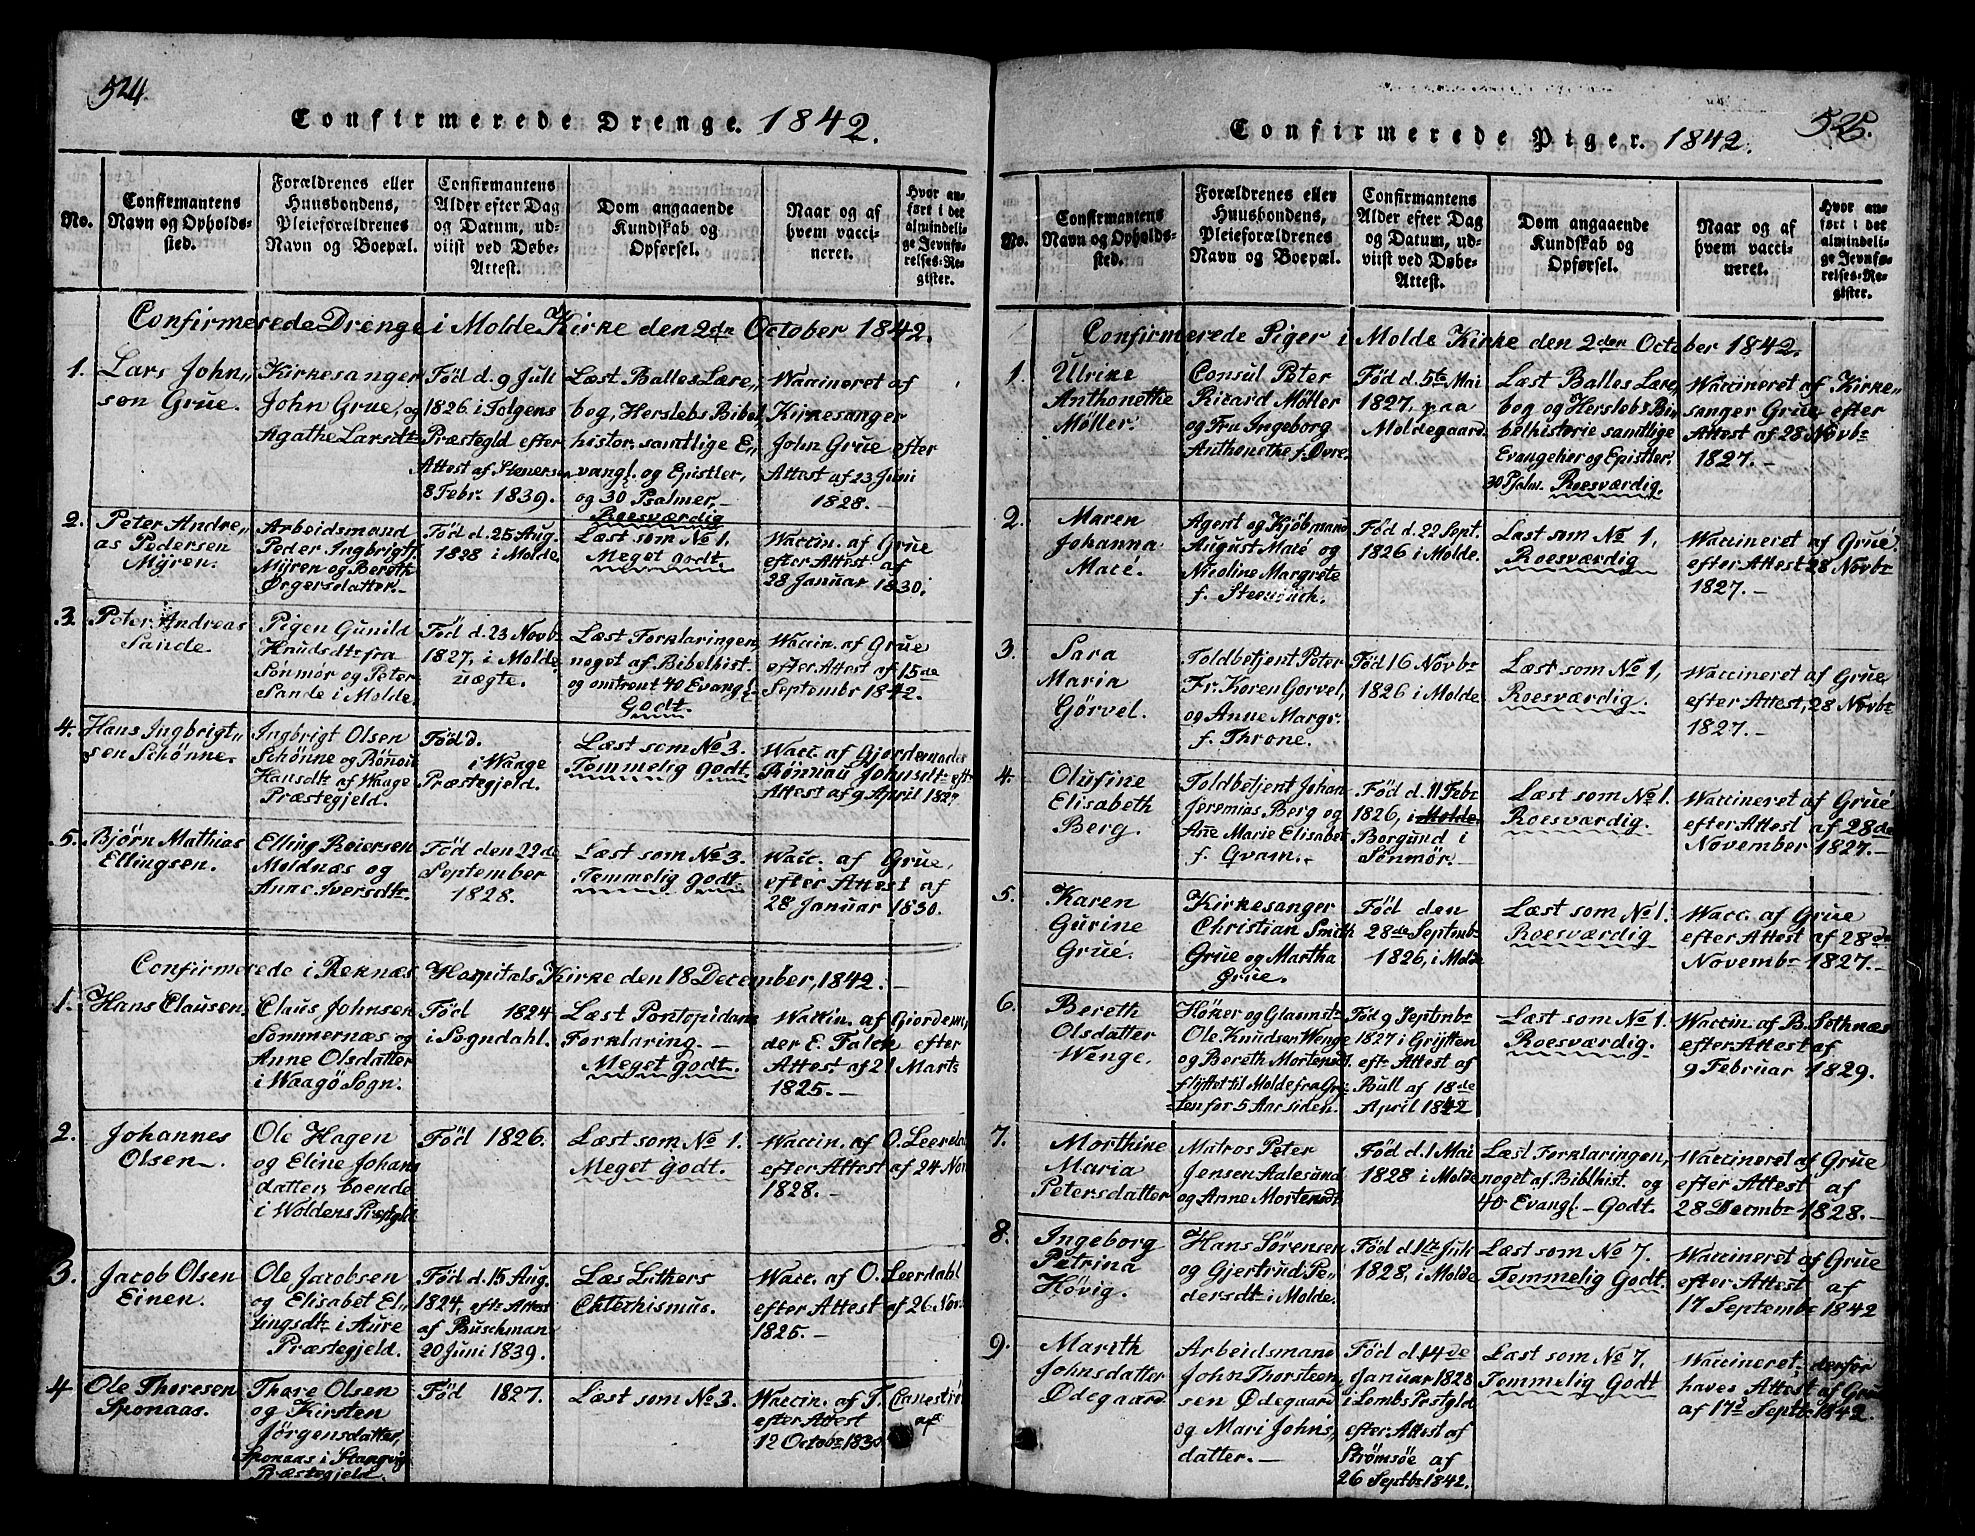 524.
Confirmerede Drenge. 1842.
No.
Confirmantens
Navn og Opholds-
sted.
Forældrenes eller
Huusbondens,
Pleieforældrenes
Navn og Boepæl.
Confirmantens
Alder efter Dag
og Datum, ud-
viist ved Døbe-
Attest.
Dom angaaende
Kundskab og
Opførsel.
Naar og af
hvem vacci-
neret.
Hvor an-
ført i det
almindeli-
ge Jevnfø-
relses-Re-
gister.
Confirmerede Drenge i Molde Kirke den 2den October 1842.
1.
Lars John„
søn Grue.
Kirkesanger
John Grue, og
Agathe Larsdtr
Fød d. 9 Juli
1826. i Tolgens
Præstegld efter
Attest af Stenersen
8 Febr. 1839.
Læst Balles Lære„
bog, Herslebs Bibel
histor. samtlige E„
vangl. og Epistler,
og 30 Psalmer,
Roesværdig
Waccineret af
Kirkesanger
John Grue efter
Attest af 23 Juni
1828. —
2.
Peter Andre„
as Pedersen
Myren.
Arbeidsmand
Peder Ingbrigts.
Myren og Bereth
Ørgersdatter.
Fød d. 25 Aug.
1828 i Molde.
Læst som No 1.
Meget godt.
Waccin. af Grue
efter Attest af
28 Januar 1830.
3.
Peter Andreas
Sande.
Pigen Gunild
Knudsdtr fra
Sønmør og Peter
Sande i Molde.
Fød d. 23 Novbr
1827, i Molde
uægte.
Læst Forklaringen,
noget af Bibelhist.
og omtrent 40 Evangl.
Godt.
Waccin. af Grue
efter Attest af 15de
Septembr 1842.
4.
Hans Ingbrigt„
sen Schönne.
Ingbrigt Olsen
Schönne og Rönou
Hansdtr af Waage
Præstegjeld.
Fød d.
i Waage
Præstegjeld.
Læst som No 3.
Temmelig godt.
Wacc. af Gjordemoder
Rönnau Johnsdtr eft.
Attest af 9 April 182
5.
Bjørn Mathias
Ellingsen.
Elling Reiersen
Moldnæs og
Anne Iversdtr.
Fød den 22de
September
1828.
Læst som No 3.
Temmelig godt.
Wacc. af Grue,
efter Attest af
28 Januar 1830.
Confirmerede i Reknæs Hospitals Kirke den 18 December, 1842. —
1.
Hans Clausen.
Claus Johnsen
Sommernæs og
Anne Olsdatter
i Waagö Sogn.
Fød 1824
i Sogndahl.
Læst Pontopidans
Forklaring. —
Meget godt.
Waccin. af Gjordem„
der E. Falch efter
Attest af 21 Marts
1825. —
2.
Johannes
Olsen.
Ole Hagen
og Eline Johans
datter, boende
i Woldens Præstgld
Fød 1826.
Læst som No 1.
Meget godt.
Waccin. af O. Leerdal
efter Attest af 24 Nov
1828. —
3.
Jacob Olsen
Einen.
Ole Jacobsen
og Elisabet El„
lingsdtr i Aure
Præstegjeld.
Fød d. 15 Aug.
1824, eftr Attest
af Buschman
20 Juni 1839.
Læs Luthers
Chtechismus.
Wacc. af O. Leerdahl
efter Attest af 26 Nov.
1825. —
4
Ole Thoresen
Sponaas.
Thore Olsen
og Kirsten
Jørgensdatter,
Sponaas i Stangvig
Præstegjeld.
Fød 1827.
Læst som No 3.
Waccin. af T.
efter Attest af
12 Octobr 1830
525.
Confirmerede Piger. 1842.
No.
Confirmantens
Navn og Opholds-
sted.
Forældrenes eller
Huusbondens,
Pleieforældrenes
Navn og Boepæl.
Confirmantens
Alder efter Dag
og Datum, ud-
viist ved Døbe-
Attest.
Dom angaaende
Kundskab og
Opførsel.
Naar og af
hvem vacci-
neret.
Hvor an-
ført i det
almindeli-
ge Jevnfø-
relses-Re-
gister.
Confirmerede Piger i Molde Kirke den 2den October 1842.
1.
Ulrike
Anthonethe
Møller.
Consul Peter
Ricard Møller
og Fru Ingeborg
Anthonethe f. Øvre.
Fød d. 5te Mai
1827, paa
Moldegaard.
Læst Balles Lære„
bog og Herslebs Bi„
belhistorie samtlige
Evangelier og Epistler,
30 Psalm. Roesværdig.
Waccineret af Kirke„
sanger Grue efter
Attest af 28 Novbr
1827. —
2.
Maren
Johanna
Macé.
Agent og Kjøbmand
August Macé og
Nicoline Margrete
f.
Fød d. 22 Sept.
1826 i Molde.
Læst som No 1,
Roesværdig
Waccineret af Grue
efter Attest 28 Novbr
1827. —
3.
Sara
Maria
Gørvel.
Toldbetjent Peter
Fr. Koren Gørvel,
og Anne Margr.
f. Throne.
Fød 16 Novbr
1826 i Molde.
Læst som No 1,
Roesværdig.
Waccineret af Grue
efter Attest, 28 Novbr
1827. —
4.
Olufine
Elisabeth
Berg.
Toldbetjent Johan
Jeremias Berg og
Ane Marie Elisabet
f. Qvam.
Fød d. 11 Febr
1826, i Molde
Borgund i
Sønmør.
Læst som No 1.
Roesværdig.
Waccineret af Grue
efter Attest af 28de
November 1827. —
5.
Karen
Gurine
Grue.
Kirkesanger
Christian Smith
Grue og Martha
Grue.
Fød den
28de Septembr
1826, i Molde
Læst som No 1.
Roesværdig
Wacc. af Grue
efter Attest af 28de
Novembr 1827. —
6.
Bereth
Olsdatter
Wenge.
Höker og Glasmstr
Ole Knudsen Wenge
og Bereth Mortensdt.
flyttet til Molde fra Gry„
ten for 5 Aar siden.
Fød 9 Septembr
1827 i Grytten
eftr Attest af
Bull af 18de
April 1842
Læst som No 1.
Roesværdig.
Waccin. af B. Sethnæs
efter Attest af
9 Februar 1829.
7.
Morthine
Maria
Petersdatter
Matros Peter
Jensen Aalesund
og Anne Mortensdtr
Fød d. 1 Mai
1828 i Molde
Læst Forklaringen,
noget af Biblhist. og
40 Evangl. — Godt.
Waccineret af Grue
efter Attest af
28 Decmbr 1828. —
8.
Ingeborg
Petrina
Hövig.
Hans Sørensen
og Gjertrud Pe„
dersdtr i Molde.
Fød d. 17 Juli
1828, i Molde
Læst som No 7.
Temmelig Godt.
Waccineret af Grue
efter Attest af
17 Septembr 1842
9.
Marith
Johnsdatter
Ødegaard
Arbeidsmand
John Thorsteen„
sen Ødegaard
og Mari Johns„
datter. —
Fød d. 14de
Januar 1828
i Lombs Prstgld
efter Attest af
Strømsøe af
26 Septbr 1842.
Læst som No 7.
Temmelig Godt
Waccineret, derfor
haves Attest af Grue
af 17 Septbr 1842.